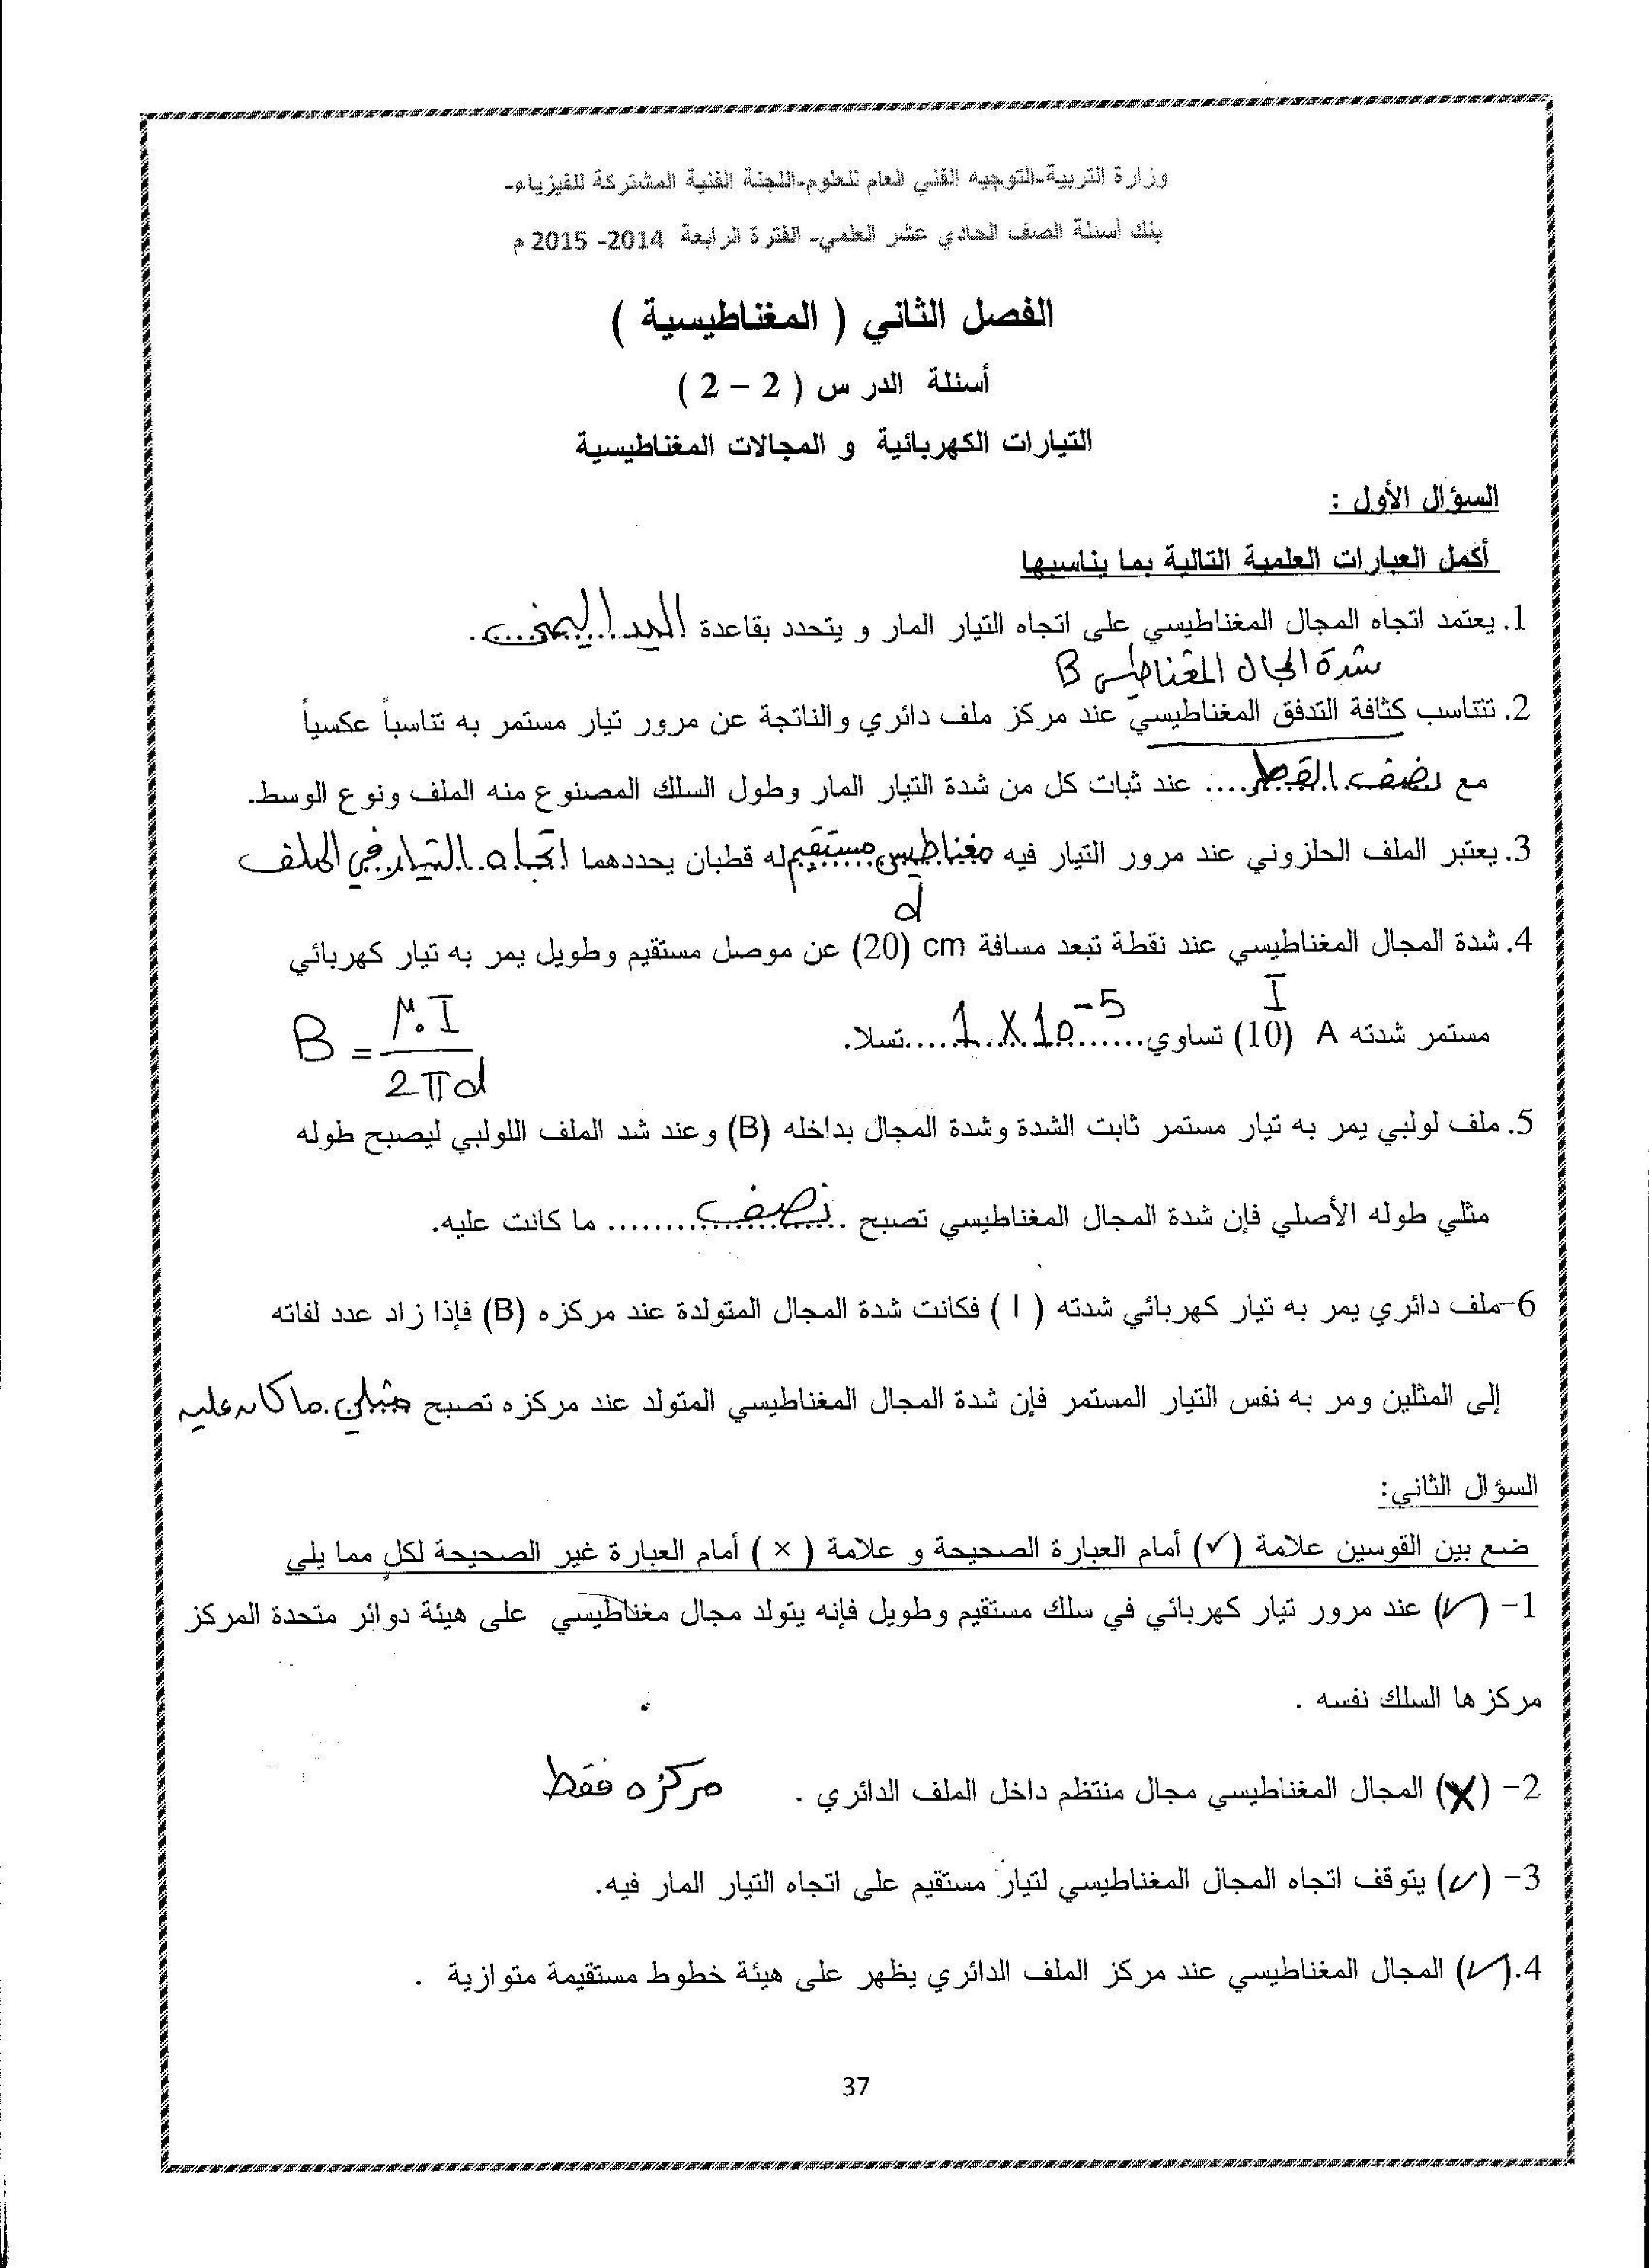 وزارة التربية-التوجيه الفني العام للعلوم-اللجنة الفنية المشتركة للفيزياء-
بنك أسئلة الصف الحادي عشر العلمي- الفترة الرابعة 2014- 2015 م
الفصل الثاني ( المغناطيسية )
أسئلة الدرس ( 2 – 2 )
التيارات الكهربائية و المجالات المغناطيسية
السؤال الأول :
أكمل العبارات العلمية التالية بما يناسبها
1. يعتمد اتجاه المجال المغناطيسي على اتجاه التيار المار و يتحدد بقاعدة اليد اليمنى.
شدة المجال المغناطيسي B
2. تتناسب كثافة التدفق المغناطيسي عند مركز ملف دائري والناتجة عن مرور تيار مستمر به تناسباً عكسياً
مع نصف القطر.... عند ثبات كل من شدة التيار المار وطول السلك المصنوع منه الملف ونوع الوسط.
3. يعتبر الملف الحلزوني عند مرور التيار فيه مغناطيس مستقيم له قطبان يحددهما اتجاه التيار في الملف
d
4. شدة المجال المغناطيسي عند نقطة تبعد مسافة cm (20) عن موصل مستقيم وطويل يمر به تيار كهربائي
I
مستمر شدته A (10) تساوي......1 X 10⁻⁵......تسلا.
B = μ₀I / 2πd
5. ملف لولبي يمر به تيار مستمر ثابت الشدة وشدة المجال بداخله (B) وعند شد الملف اللولبي ليصبح طوله
مثلي طوله الأصلي فإن شدة المجال المغناطيسي تصبح ..نصف........ ما كانت عليه.
6-ملف دائري يمر به تيار كهربائي شدته ( I ) فكانت شدة المجال المتولدة عند مركزه (B) فإذا زاد عدد لفاته
إلى المثلين ومر به نفس التيار المستمر فإن شدة المجال المغناطيسي المتولد عند مركزه تصبح مثلي ما كان عليه
السؤال الثاني:
ضع بين القوسين علامة (✓) أمام العبارة الصحيحة و علامة ( × ) أمام العبارة غير الصحيحة لكلٍ مما يلي
1- (✓) عند مرور تيار كهربائي في سلك مستقيم وطويل فإنه يتولد مجال مغناطيسي على هيئة دوائر متحدة المركز
مركزها السلك نفسه .
2- (X) المجال المغناطيسي مجال منتظم داخل الملف الدائري . مركزه فقط
3- (✓) يتوقف اتجاه المجال المغناطيسي لتيار مستقيم على اتجاه التيار المار فيه.
4.(✓) المجال المغناطيسي عند مركز الملف الدائري يظهر على هيئة خطوط مستقيمة متوازية .
37